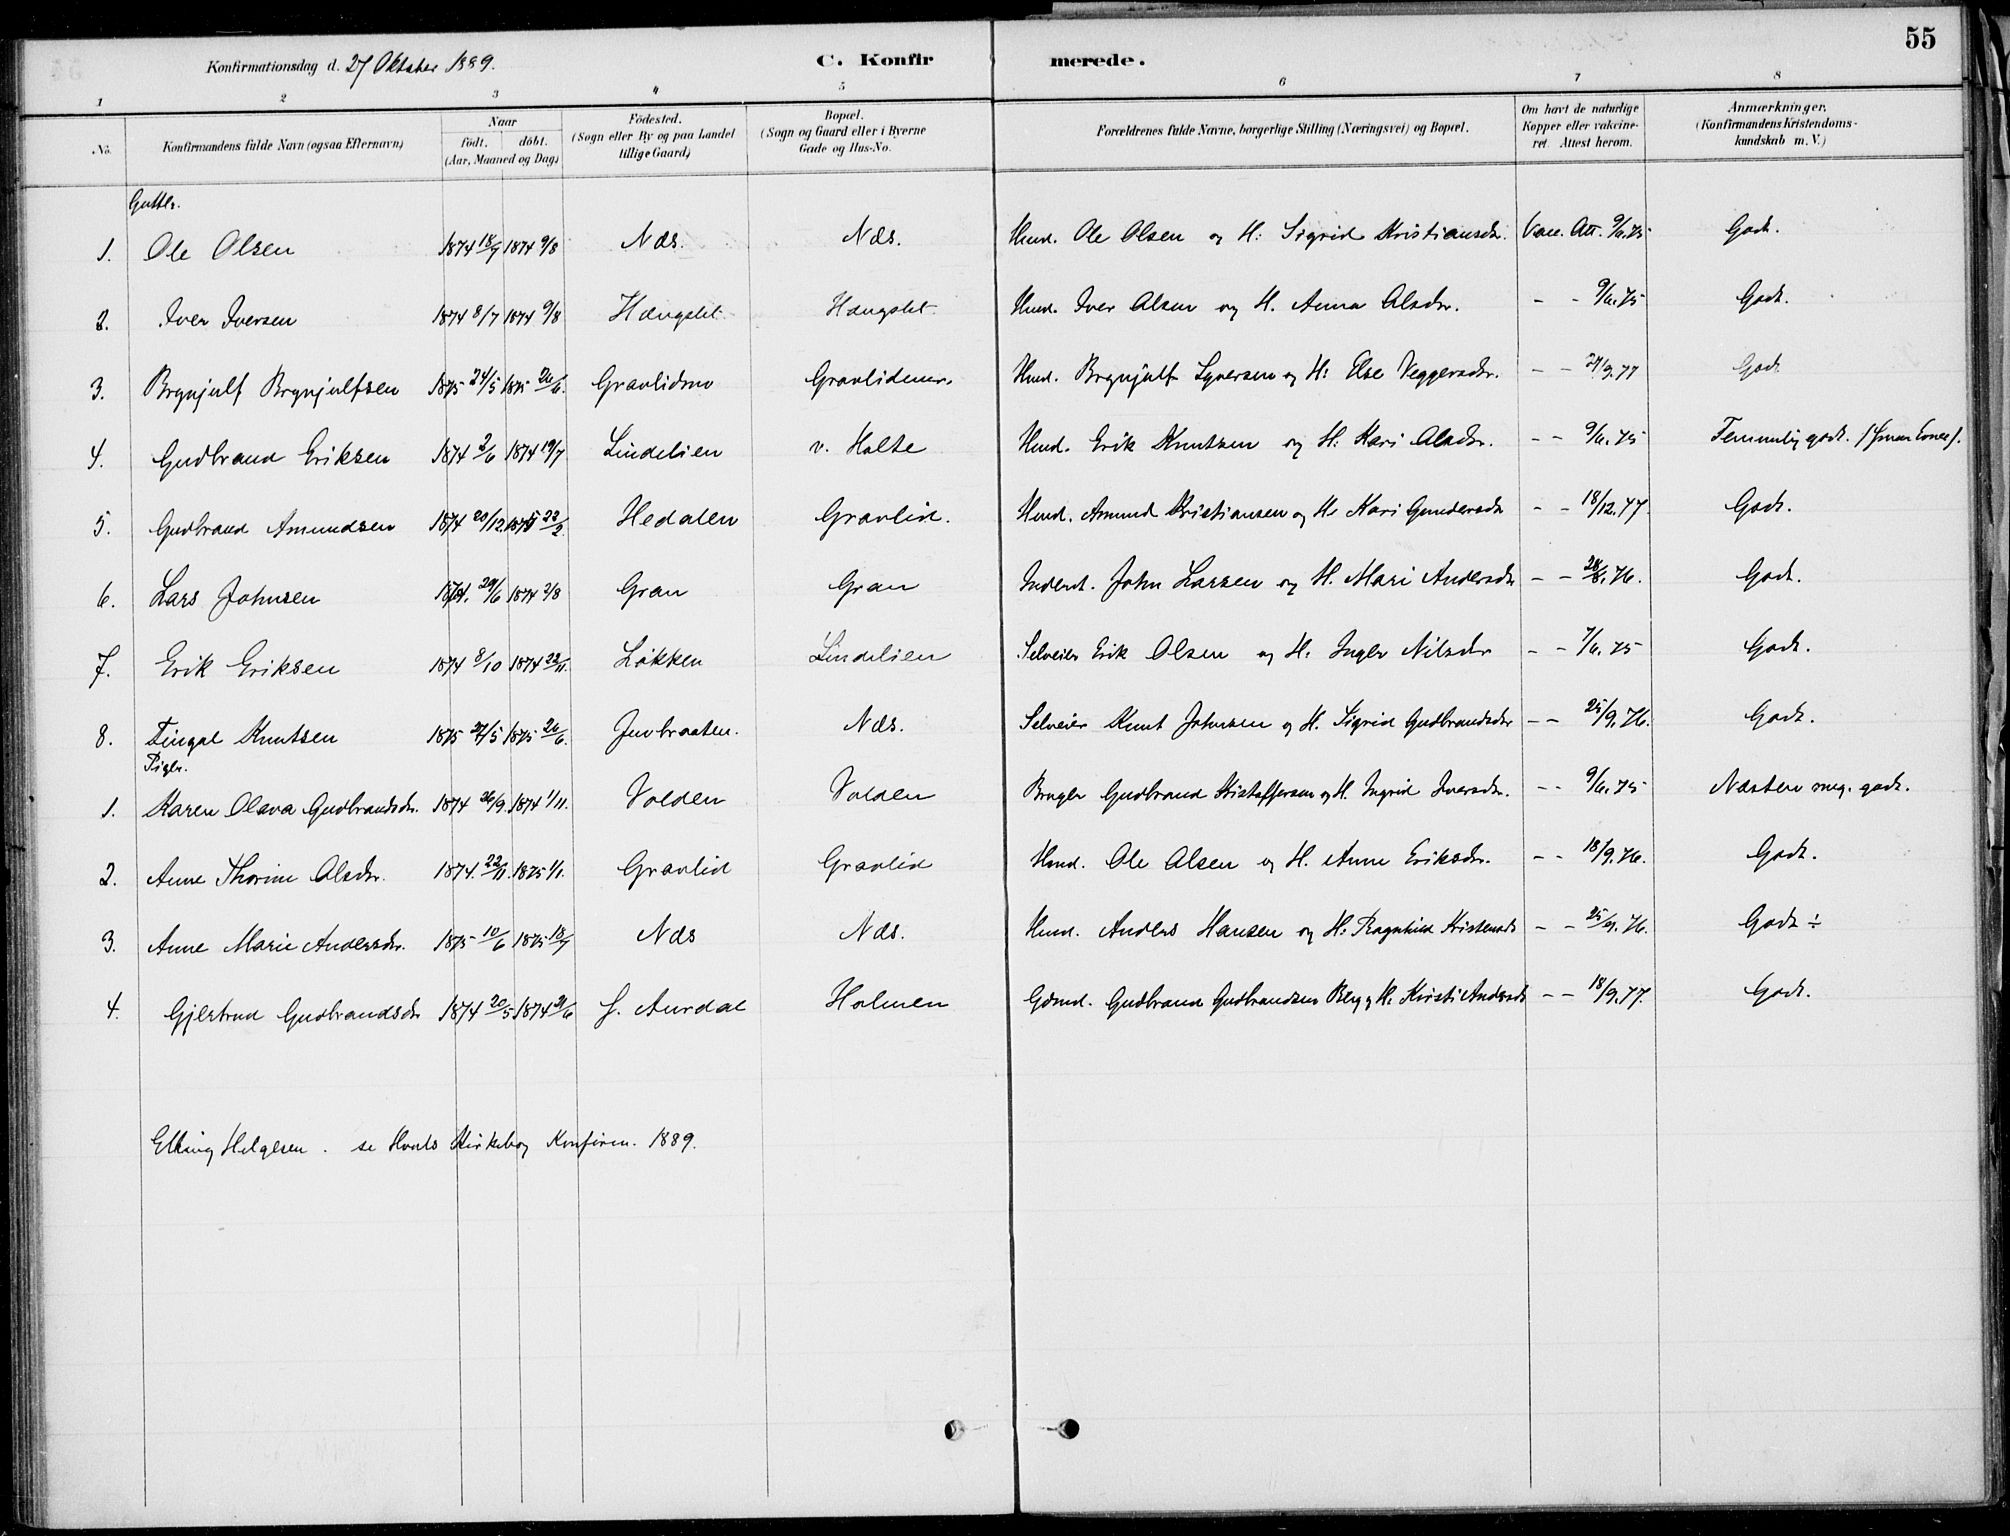 55
Konfirmationsdag d. 27 Oktober 1889. C. Konfirmerede.
1 2 3 4 5 6 7 8
No. Konfirmandens fulde Navn (ogsaa Efternavn) Naar födt. döbt. (Aar, Maaned og Dag) Födested. (Sogn eller By og paa Landet tillige Gaard) Bopæl. (Sogn og Gaard eller i Byerne Gade og Hus-No. Forældrenes fulde Navne, borgerlige Stilling (Næringsvei) og Bopæl. Om havt de naturlige Kopper eller vakcineret. Attest herom. Anmærkninger. (Konfirmandens Kristendomskundskab m. V.)
Gutter.
1. Ole Olsen 1874 18/7 1874 9/8 Næs. Næs. Hmd. Ole Olsen og H: Sigrid Kristiansdr. Vac. Att. 9/6.75 Godt.
2. Iver Iversen 1874 8/7 1874 9/8 Hængslet Hængslet Hmd. Iver Olsen og H. Anna Olsdr. - - 9/6.75 Godt.
3. Brynjulf Brynjulfsen 1875 24/5 1875 26/6. Gravlidmo Hmd. Brynjulf Syversen og H: Else Veggersdr. - - 27/9.77 Godt
4. Gudbrand Eriksen 1874 2/6 1874 19/7 Lindelien v. Holte Hmd. Erik Knutsen og H: Kari Olsdr. - - 9/6.75 Temmelig godt.
5. Gudbrand Amundsen 1874 20/12 1875 22/2. Hedalen Gravlid. Hmd. Amund Kristiansen og H: Kari Gundersdr - - 18/12.77. Godt.
6. Lars Johnsen 1874. 29/6 1874 2/8 Gran Gran Inderst. John Larsen og H. Mari Andersdr - - 28/8.76. Godt.
7. Erik Eriksen 1874 8/10 1874 22/11. Løkken Lindelien Selveier Erik Olsen og H. Ingebr Nilsdr - - 7/6.75 Godt.
8. Fingal Knutsen 1875 27/5 1875 26/6. Juvbraaten. Næs. Selveier Knut Johnsen og H. Sigrid Gudbrandsdr - - 25/9.76. Godt.
Piger.
1. Karen Olava Gudbrandsdr. 1874 26/9. 1874 1/11. Volden Volden Bruger Gudbrand Kristoffersen og H. Ingrid Iversdr. - - 9/6.75 Næsten meg. godt.
2. Anne Thorine Olsdr. 1874. 22/11. 1875 1/1. Gravlid Gravlid Hmd. Ole Olsen og H. Anne Eriksdr. - - 18/9.76. Godt.
3. Anne Marie Andersdr. 1875 10/6 1875 18/7 Næs Næs. Hmd. Anders Hansen og H: Ragnhild Kristensdr - - 25/9.76. Godt ÷
4. Gjertrud Gudbrandsdr 1874 20/5. 1874 21/6 S. Aurdal Holmen Gdmd. Gudbrand Gudbrandsen Berg og H. Kristi Andersdr - - 18/9.77. Godt.
Elling Helgesen. se Hvals Kirkebog Konfirm. 1889.